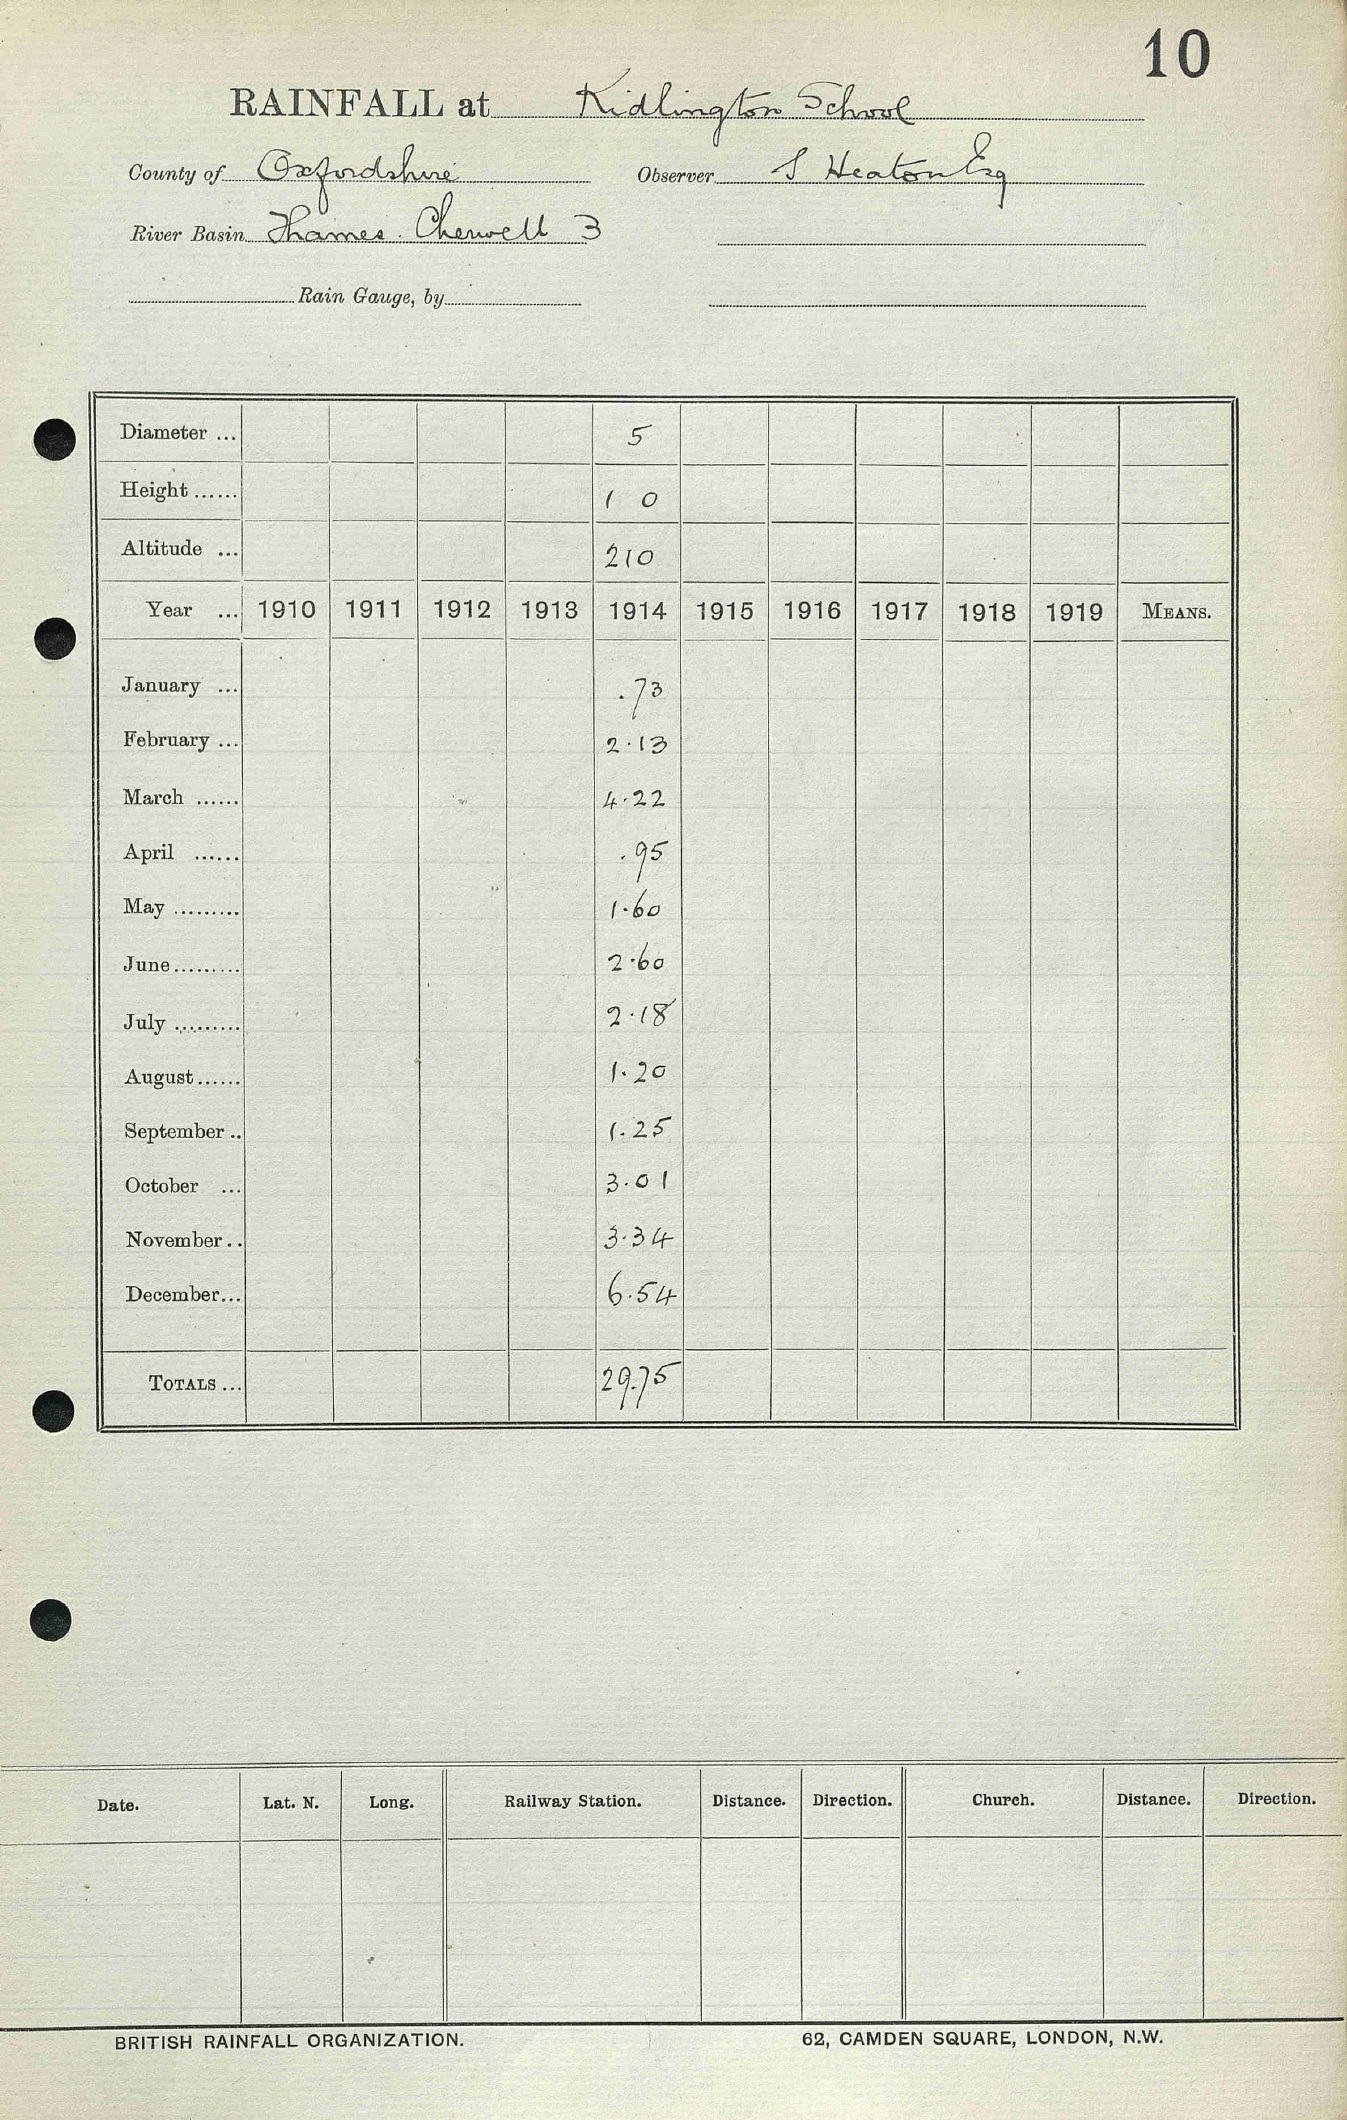 10
RAINFALL at Kidlington School
County of Oxfordshire Observer S Heaton Esq
River Basin Thames. Cherwell 3
Rain Gauge, by
Diameter ... 5
Height ...... 1 0
Altitude ... 210
Year ... 1910 1911 1912 1913 1914 1915 1916 1917 1918 1919 MEANS.
January ... .73
February ... 2.13
March ...... 4.22
April ...... .95
May ......... 1.60
June ......... 2.60
July ......... 2.18
August ...... 1.20
September .. 1.25
October ... 3.01
November .. 3.34
December ... 6.54
TOTALS ... 29.75
Date. Lat. N. Long. Railway Station. Distance. Direction. Church. Distance. Direction.
BRITISH RAINFALL ORGANIZATION. 62, CAMDEN SQUARE, LONDON, N.W.